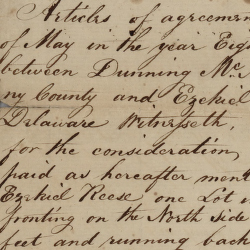 Articles of agreemen
of May in the year Eigh
between Dunning Mc
ny County and Ezekiel
Delaware Witnesseth,
for the consideration
paid as hereafter ment
Ezekiel Reese, one Lot
fronting on the North side
feet and running back